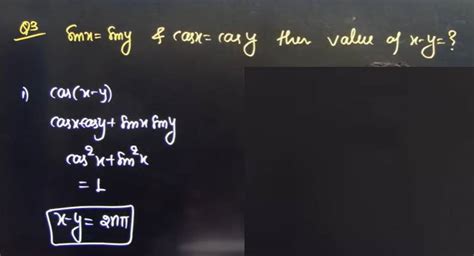 Q3 sinx = siny & cosx = cosy then value of x-y = ?
1) cos(x-y)
cosxcosy + sinx siny
cos²x + sin²x
= 1
x-y = 2nπ